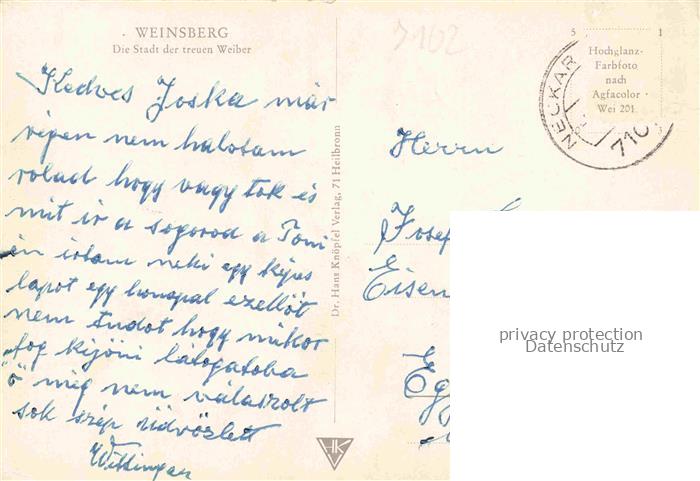 WEINSBERG
Die Stadt der treuen Weiber
Kedves Joska már
régen nem halotam
rolad hogy vagy tok és
mit ir a sogorod a Toni
én irtam neki egy képes
lapot egy honapal ezellöt
nem tudot hogy mikor
fog kijöni látogatoba
ö még nem válaszolt
sok szép üdvözlett
Wittinger
Dr. Hans Knöpfel Verlag, 71 Heilbronn
HK
7102
5 1
Hochglanz-
Farbfoto
nach
Agfacolor
Wei 201
NECKAR
710
Herrn
Josef
Eisen
Eg
privacy protection
Datenschutz